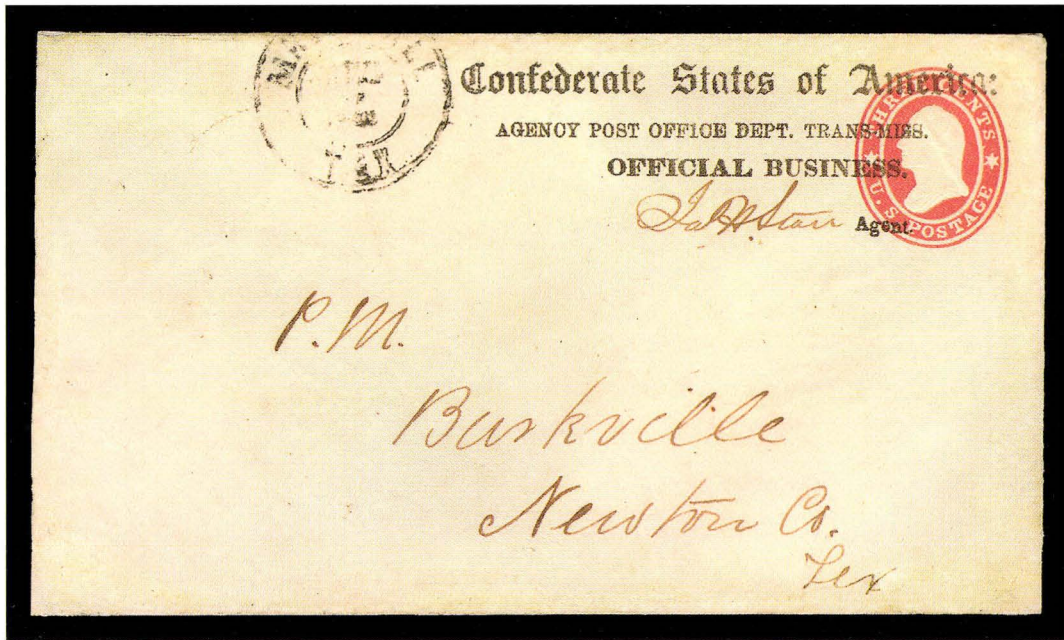 Confederate States of America:
AGENCY POST OFFICE DEPT. TRANS-MISS.
OFFICIAL BUSINESS.
Agent.
THREE CENTS
U.S. POSTAGE
TEX
P.M.
Burkville
Newton Co.
Tex